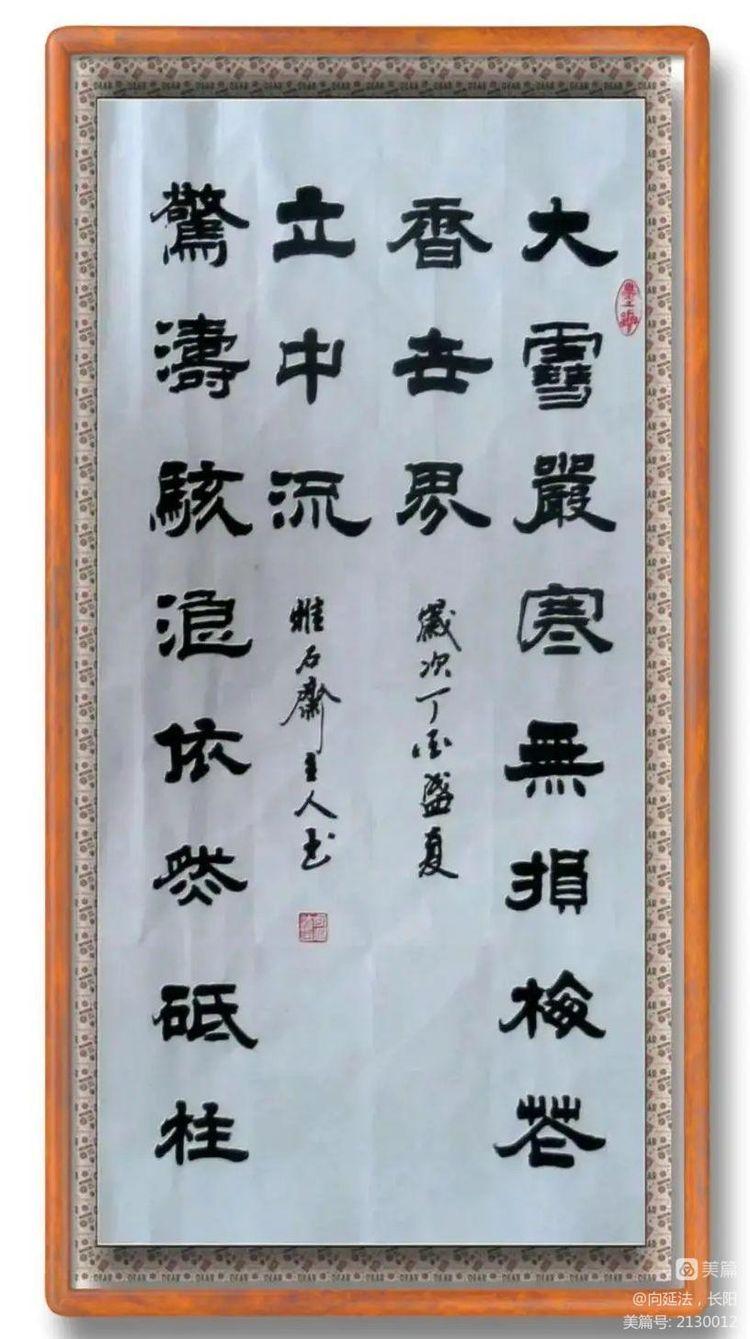 大雪嚴寒無損梅花
香世界
歲次丁酉盛夏
驚濤駭浪依然砥柱
立中流
雅石齋主人书
美篇
@向延法，长阳
美篇号: 2130012